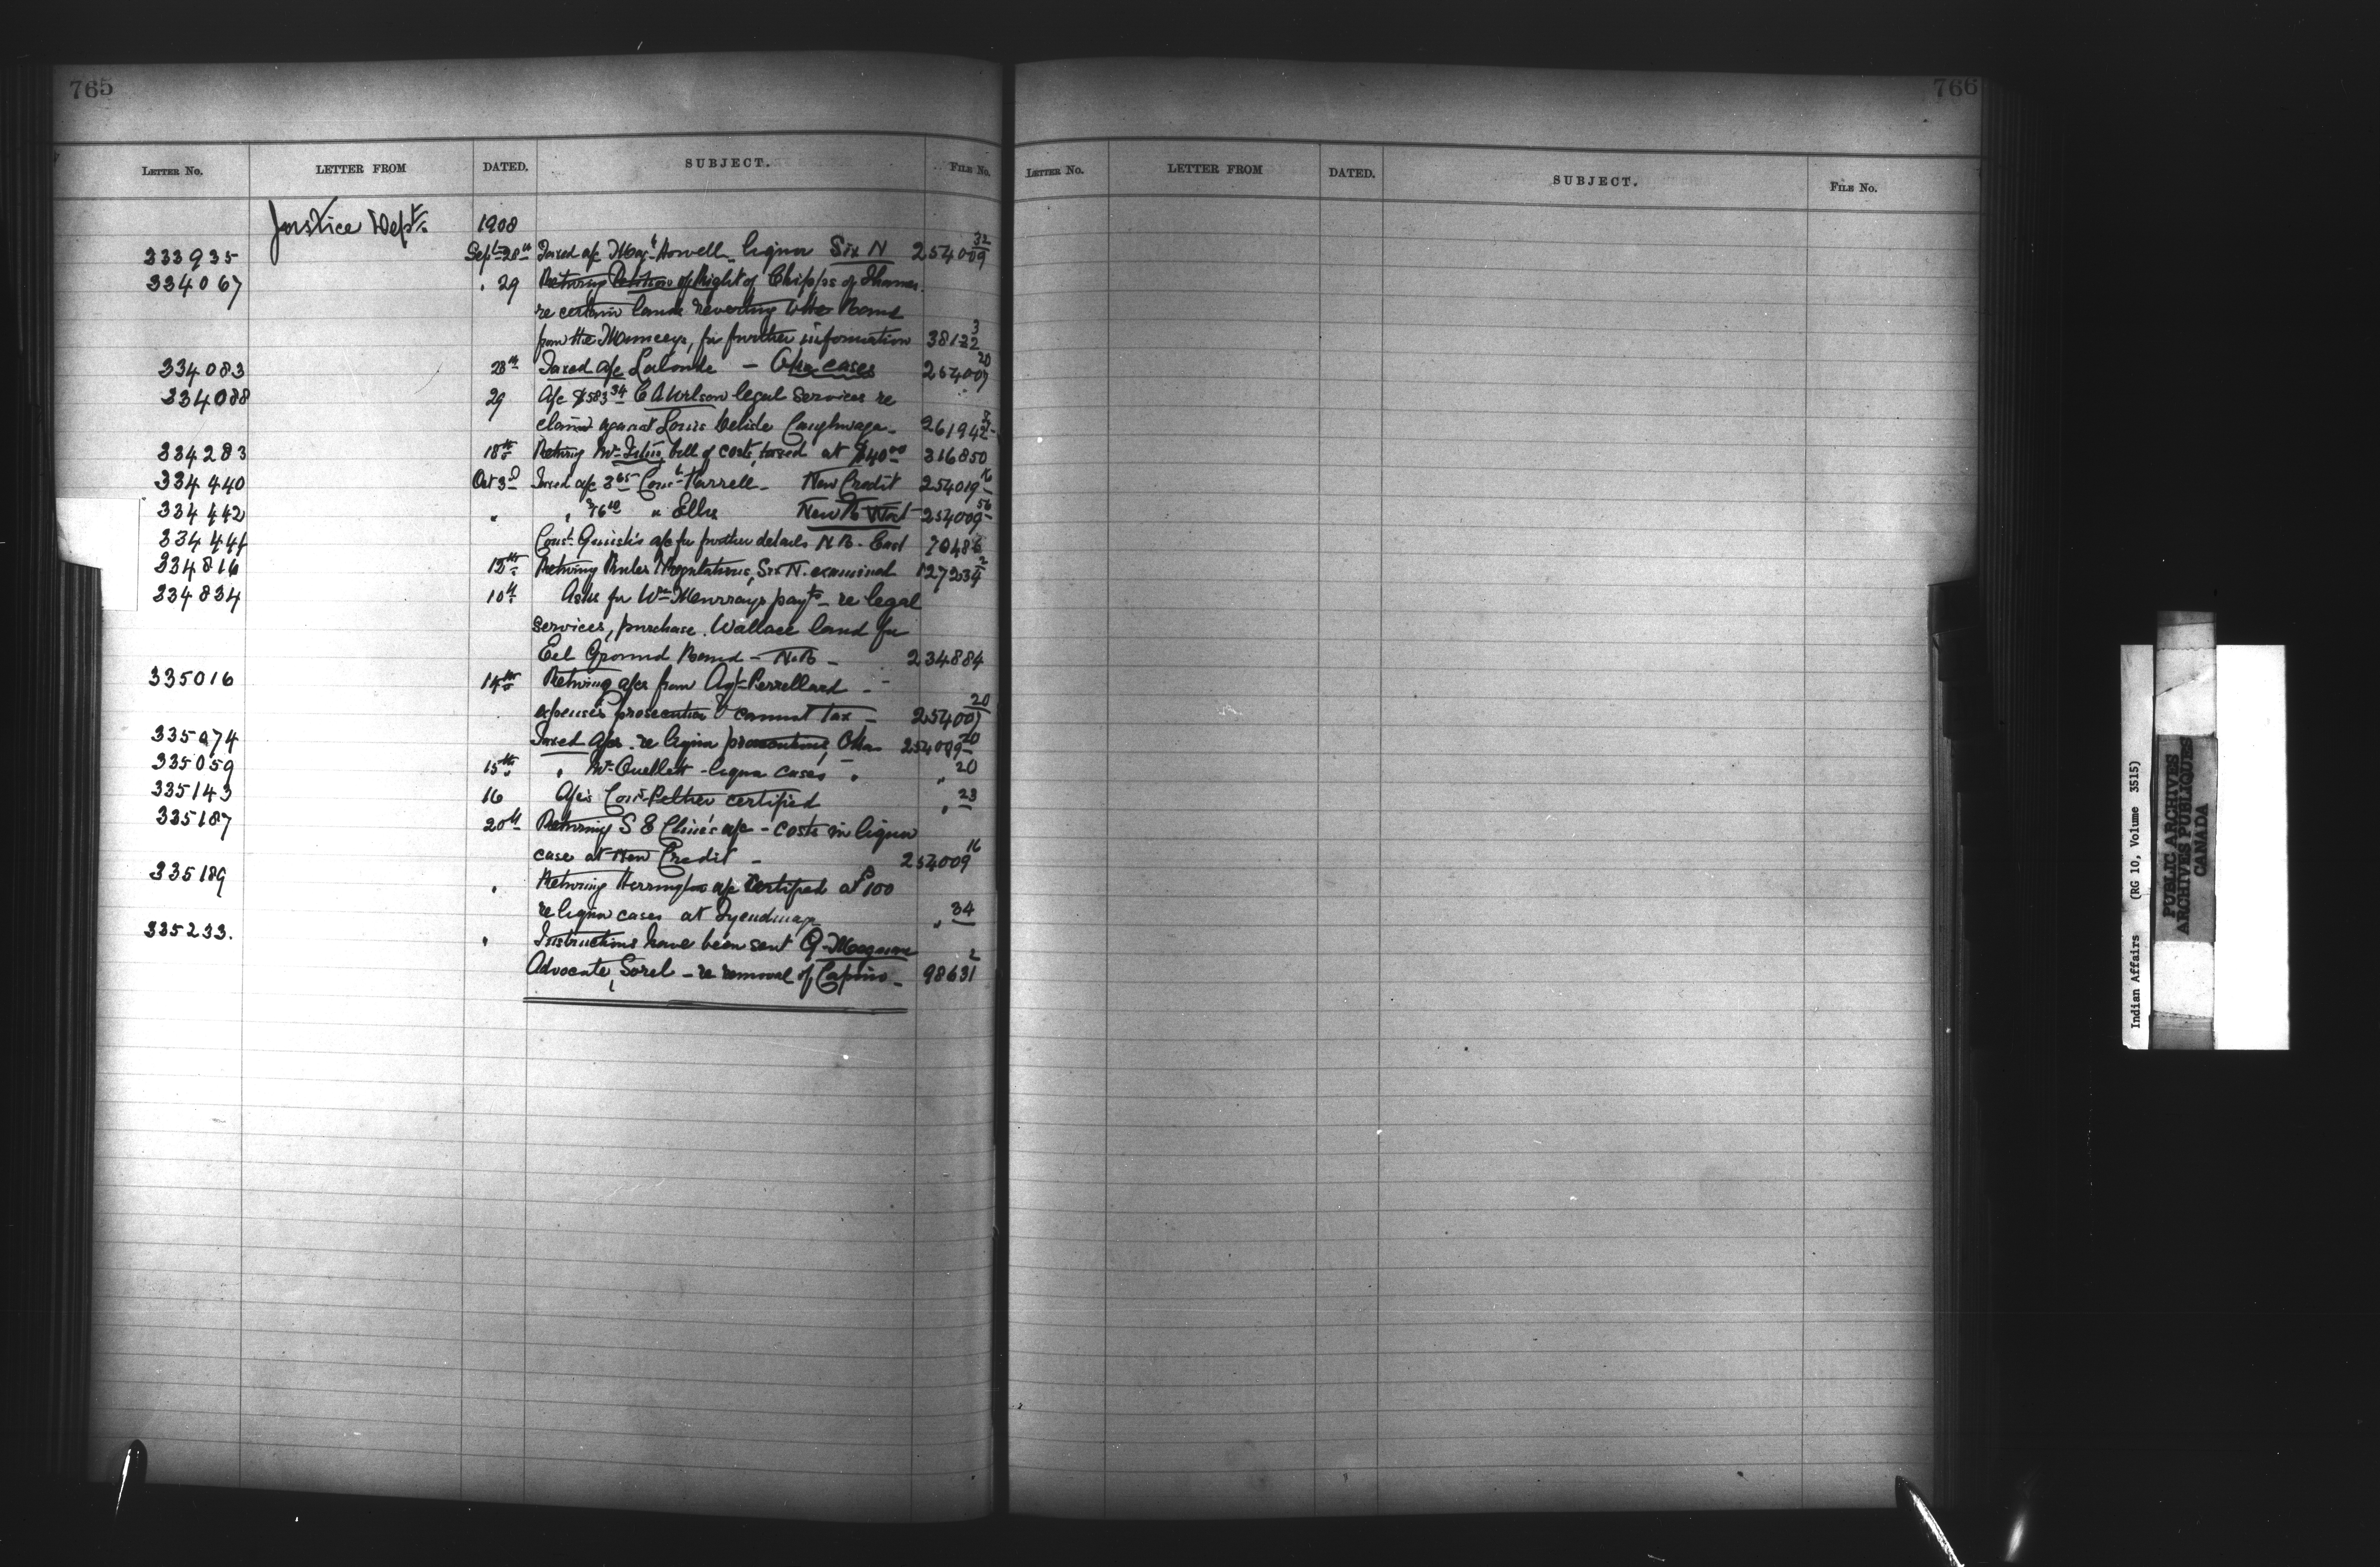 765
LETTER No. LETTER FROM DATED. SUBJECT. FILE No.
Justice Dept. 1908
333935 Sept 28th Taxed a/c Mag't Howell liquor Six N 254009 32
334067 " 29 Retwing Petition of Right of Chipps of Thames
re certain lands reverting to the Band
from the Munceys, for further information 38122 3
334083 28th Taxed a/c Lalonde — Oka cases 254007 20
334088 29 A/c $583 34 C A Wilson legal services re
claim against Louis Delisle Caughnwaga 261942
334283 18th Retwing Mr bill of costs, taxed at $40 00 316850
334440 Oct 3d Taxed a/c 3 65 Const Farrell — New Credit 254019 16
334442 " " " Ellis New B West 254009 56
334441 Const a/c for further details N B. East 70486
334816 13th Retwing Rules & Regulations, Six N. examined 127234 2
334834 10th Asks for Wm Murrays payt — re legal
services, purchase Wallace land for
Eel Ground Band — N.B — 234884
335016 14th Retwing a/cs from Agt Perrellard —
expenses prosecution & cannot tax — 254007 20
335074 Taxed a/cs re liquor prosecutions, Oka 254009 20
335059 15th " Mr Ouellett - liquor cases " " 20
335143 16 A/cs Const Pelther certified " 23
335187 20th Retwing S E Cline's a/c - costs in liquor
case at New Credit — 254009 16
335189 " Retwing Herrington a/c certified at 100
re liquor cases at Tyendinaga " 34
335233. " Instructions have been sent
Advocate, Sorel — re removal of Capino — 98631 2
766
LETTER No. LETTER FROM DATED. SUBJECT. FILE No.
Indian Affairs (RG 10, Volume 3515)
PUBLIC ARCHIVES
ARCHIVES PUBLIQUES
CANADA